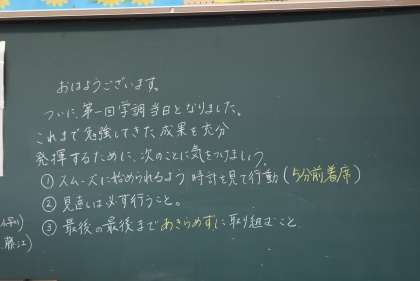 おはようございます。
ついに、第一回学調当日となりました。
これまで勉強してきた、成果を充分
発揮するために、次のことに気をつけましょう。
① スムーズに始められるよう 時計を見て行動 (5分前着席)
② 見直しは必ず行うこと。
③ 最後の最後まであきらめずに取り組むこと
藤江)